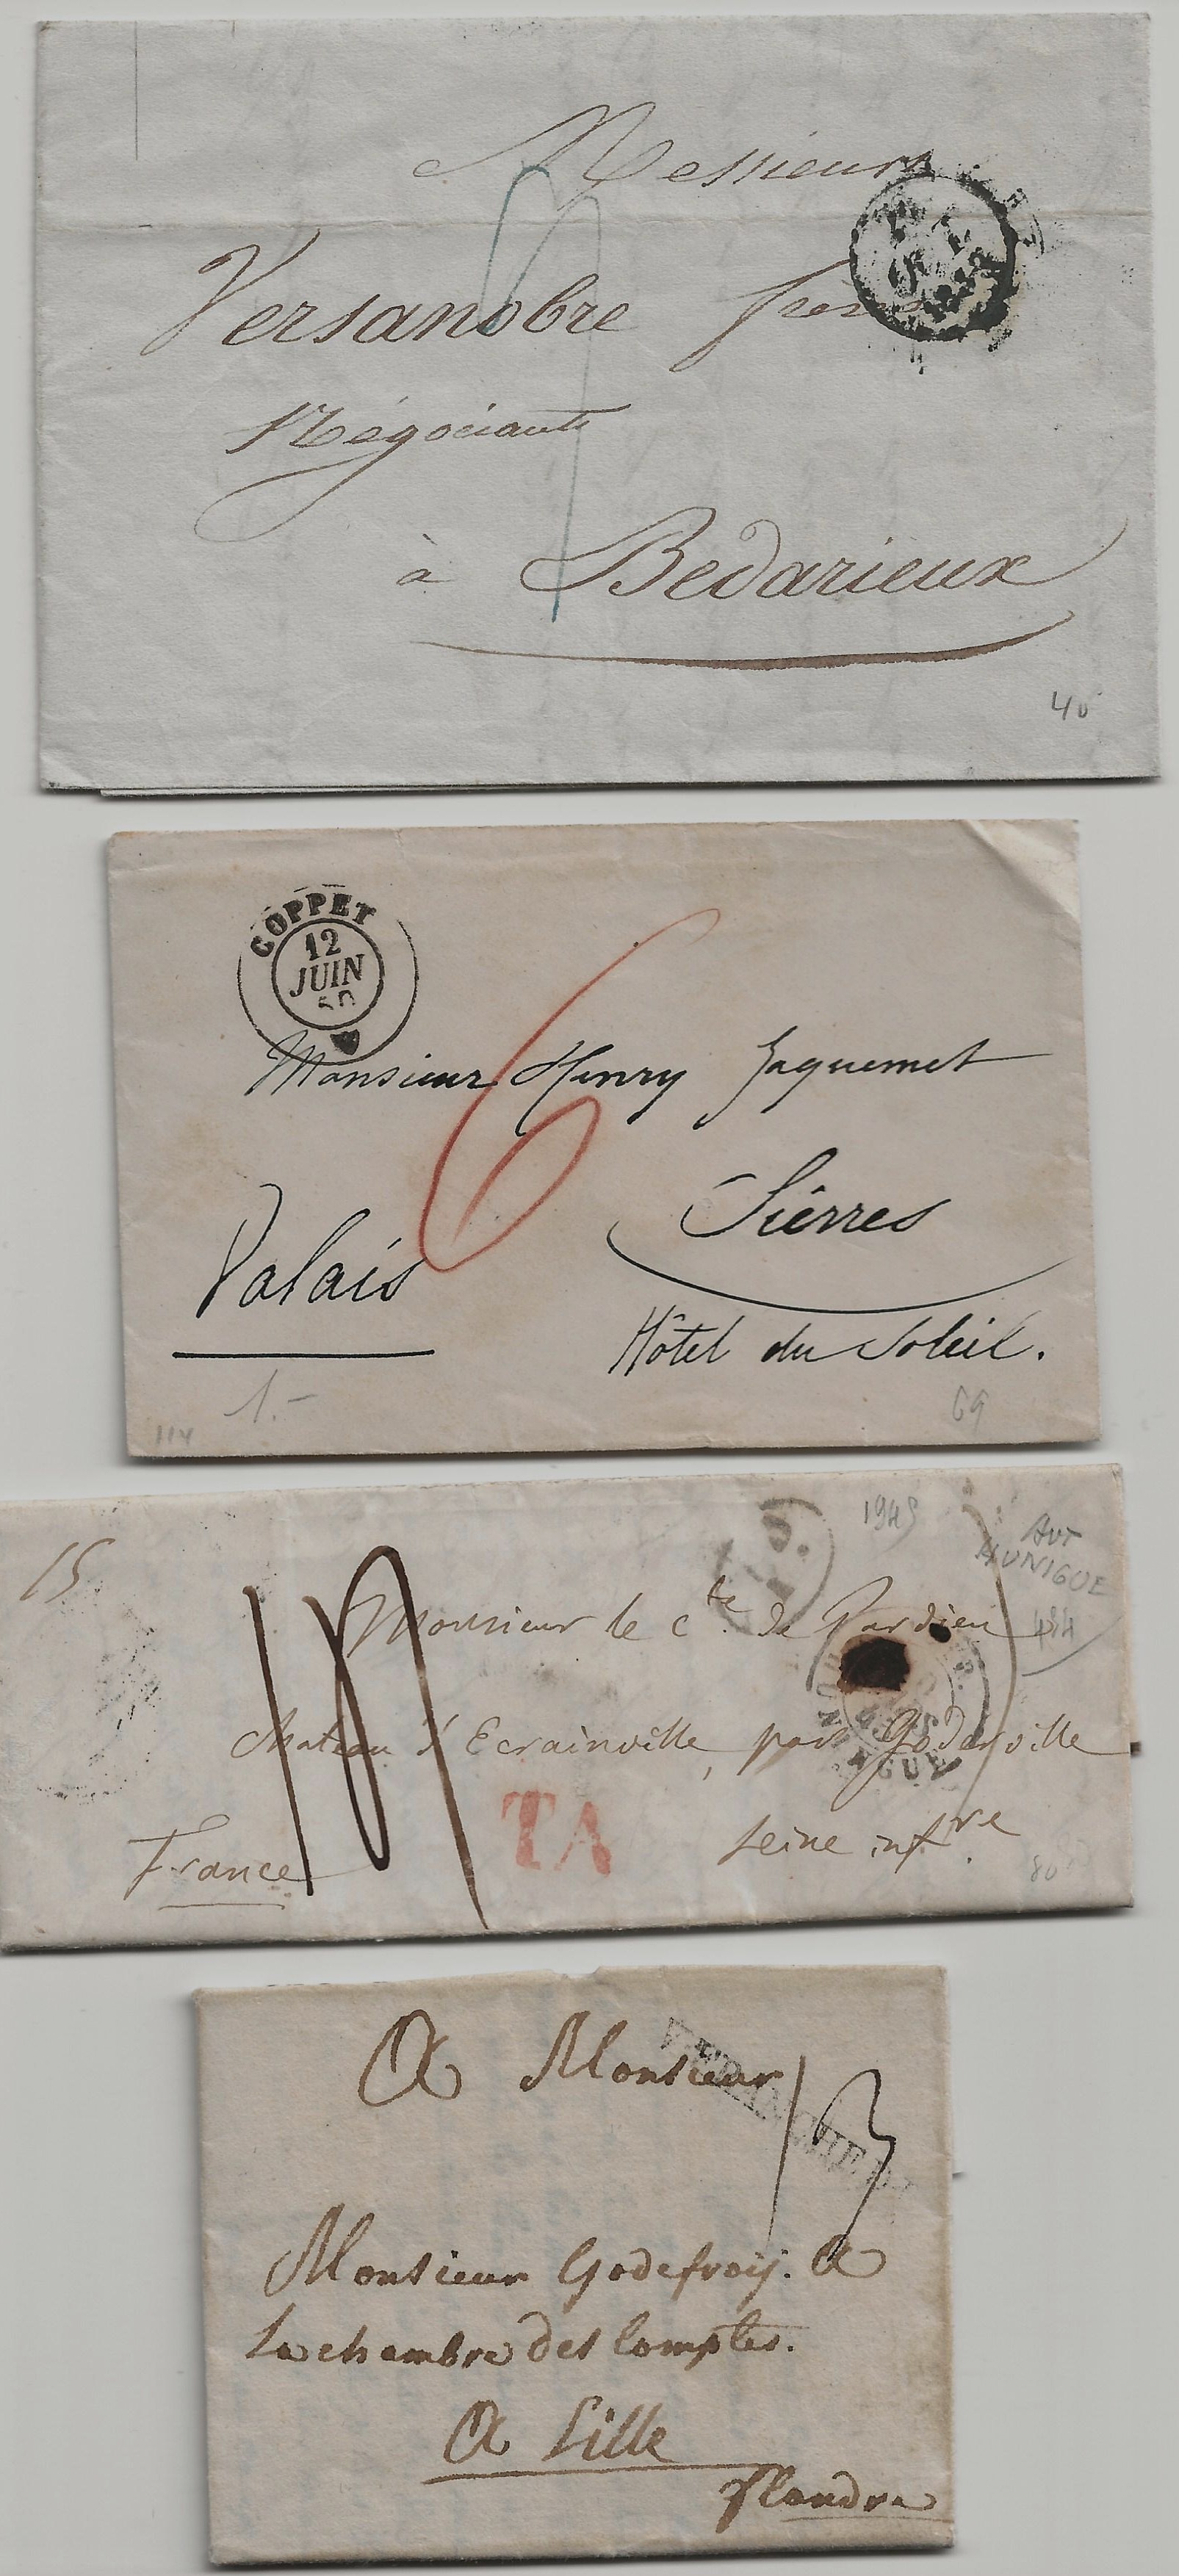 Messieurs
Versanobre frères
Négociants
à Bedarieux
40
COPPET
12
JUIN
50
6
Monsieur Henry Jaquemet
Sierres
Valais
Hôtel du Soleil.
1.-
114
69
15
1945
Aus
HUNIGUE
484
Monsieur le cte de Pardieu
Chateau d'Ecrainville, par Goderville
TA
France
seine infre
80
A Monsieur
13
Monsieur Godefroy. A
La chambre des Comptes.
A Lille
flandre